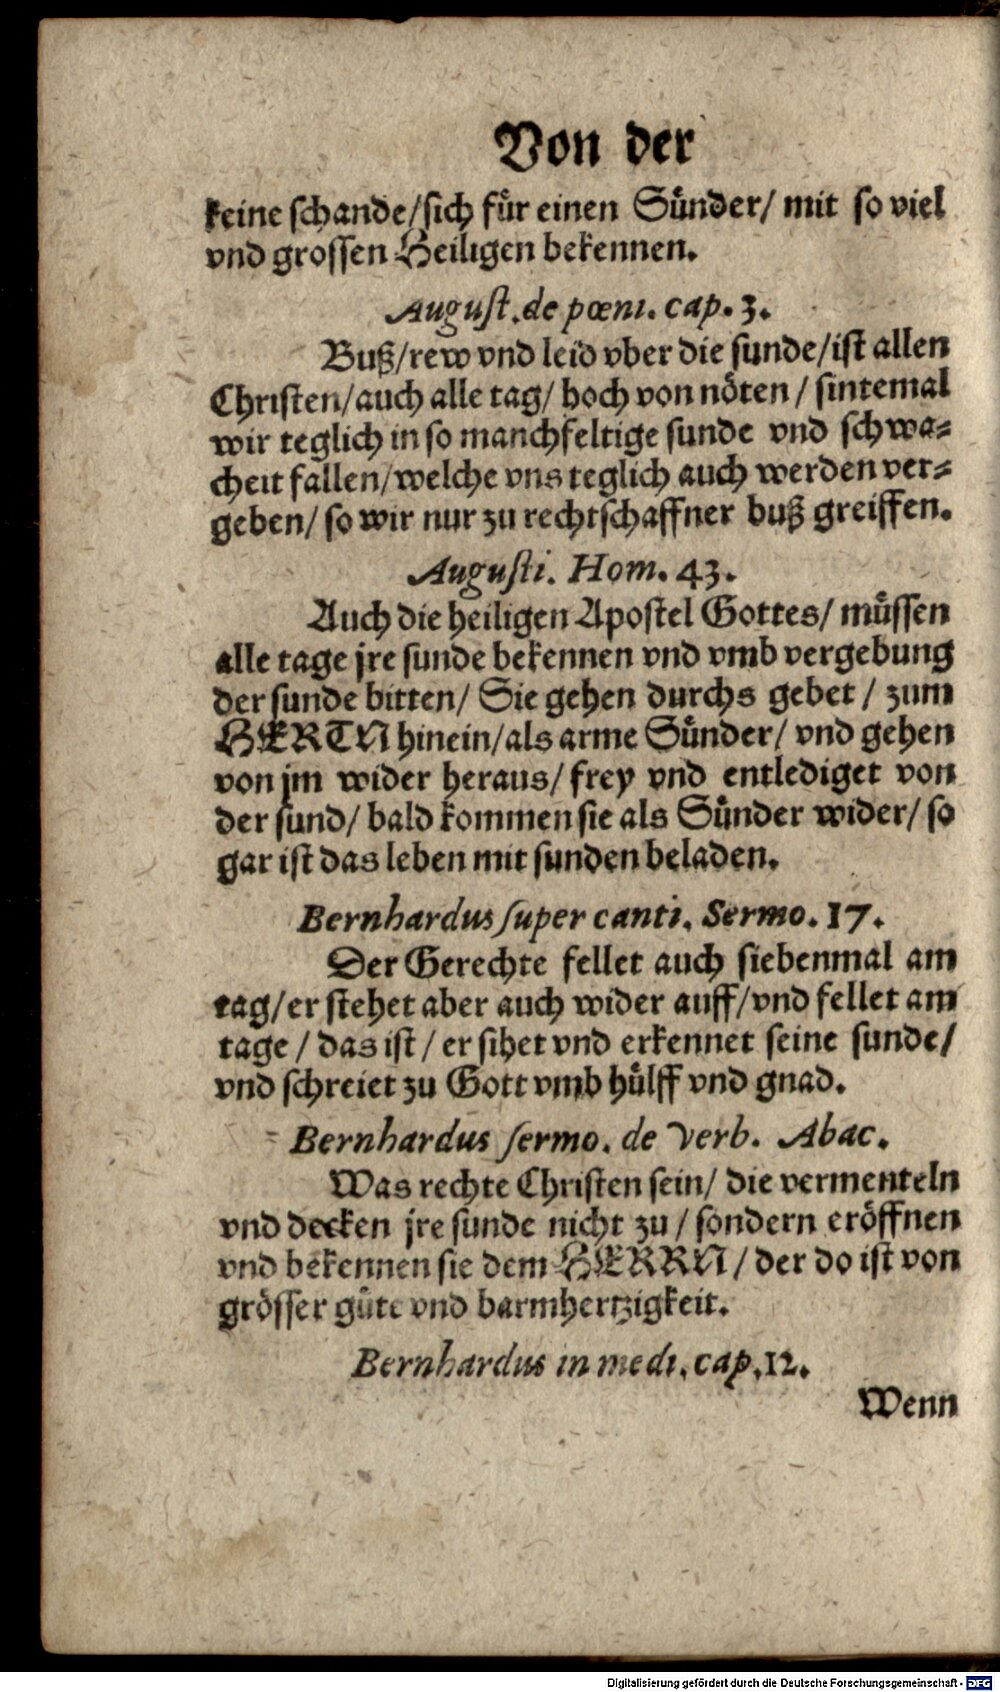 Von der
keine schande/sich für einen Sünder/ mit so viel
vnd grossen Heiligen bekennen.
August. de pœni. cap. 3.
Buß/rew vnd leid vber die sunde/ist allen
Christen/auch alle tag/ hoch von nöten / sintemal
wir teglich in so manchfeltige sunde vnd schwa⸗
cheit fallen/welche vns teglich auch werden ver⸗
geben/ so wir nur zu rechtschaffner buß greiffen.
Augusti. Hom. 43.
Auch die heiligen Apostel Gottes/ müssen
alle tage jre sunde bekennen vnd vmb vergebung
der sunde bitten/ Sie gehen durchs gebet / zum
HERTN hinein/als arme Sünder/ vnd gehen
von jm wider heraus/ frey vnd entlediget von
der sund/ bald kommen sie als Sünder wider/ so
gar ist das leben mit sunden beladen.
Bernhardus super canti. Sermo. 17.
Der Gerechte fellet auch siebenmal am
tag/er stehet aber auch wider auff/vnd fellet am
tage / das ist / er sihet vnd erkennet seine sunde/
vnd schreiet zu Gott vmb hülff vnd gnad.
Bernhardus sermo. de verb. Abac.
Was rechte Christen sein/ die vermenteln
vnd decken jre sunde nicht zu / sondern eröffnen
vnd bekennen sie dem HERRN / der do ist von
grösser güte vnd barmhertzigkeit.
Bernhardus in medi. cap. 12.
Wenn
Digitalisierung gefördert durch die Deutsche Forschungsgemeinschaft - DFG